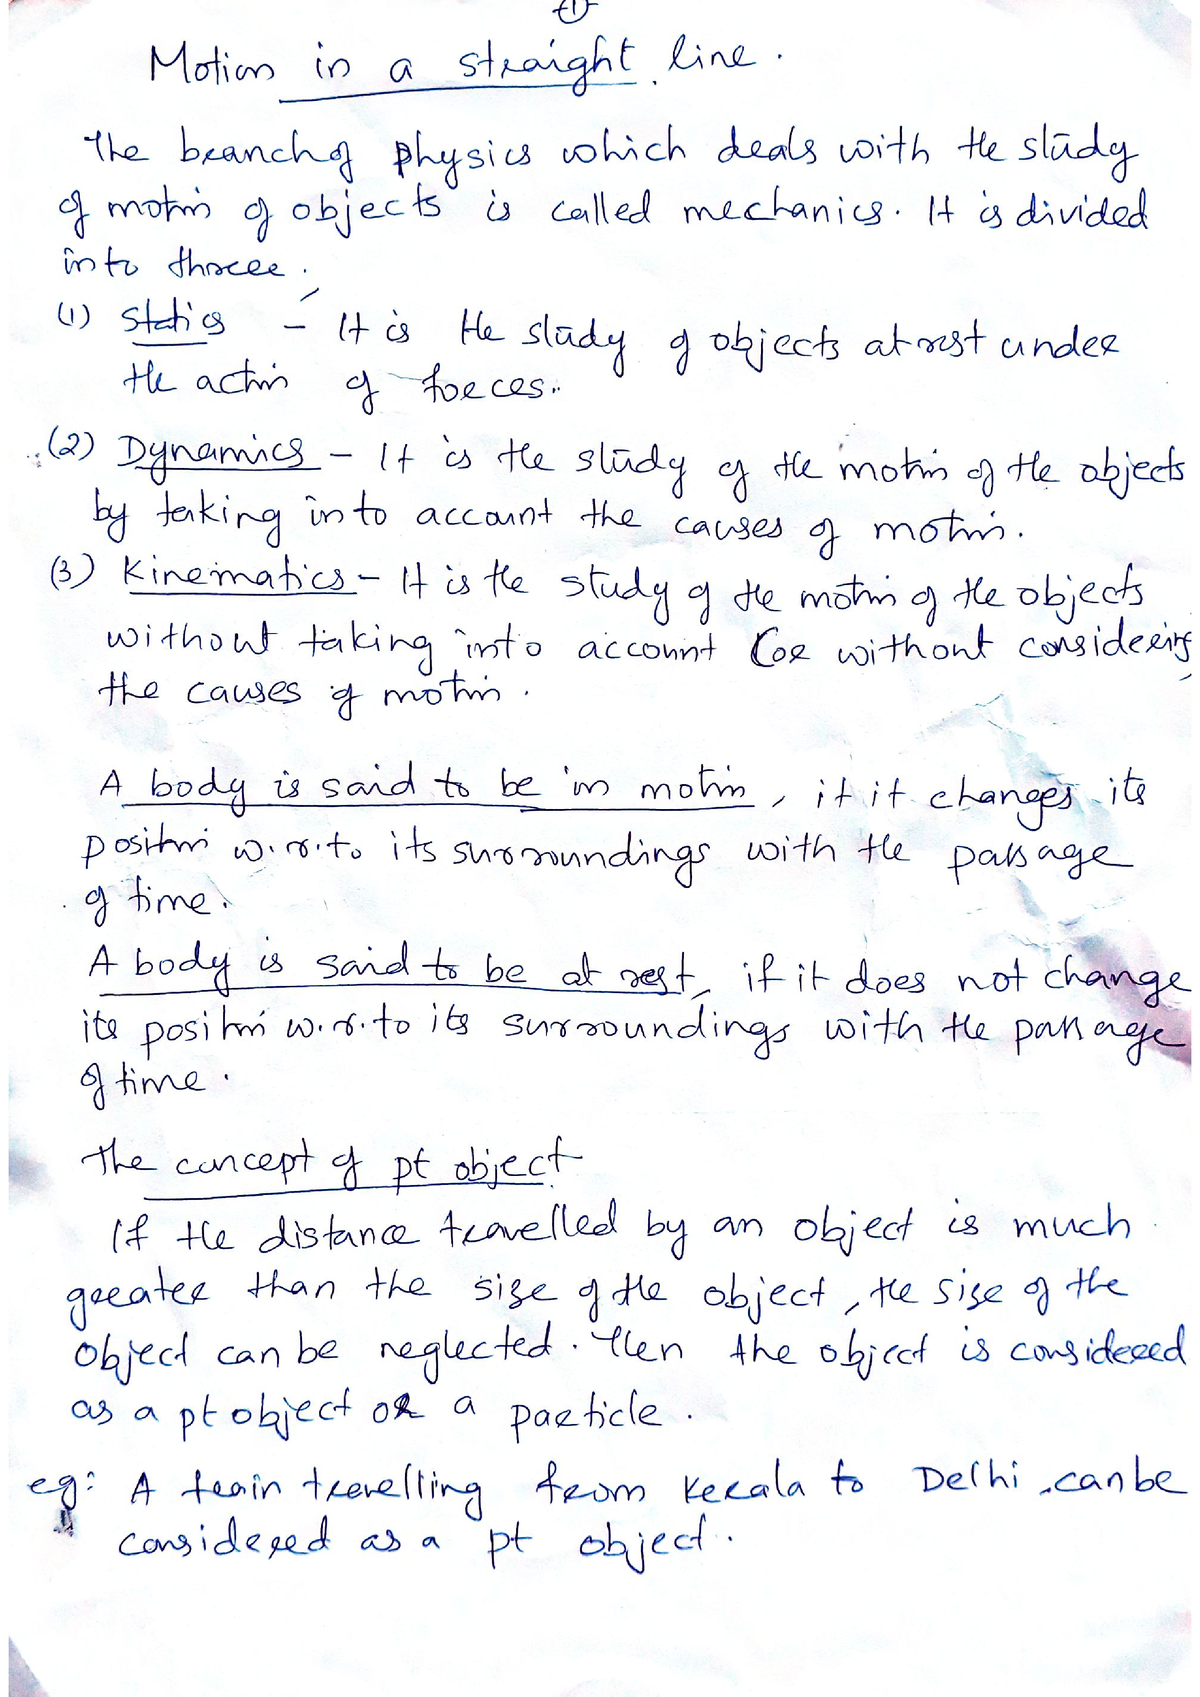 (1)
Motion in a straight line.
The branch of physics which deals with the study
of motion of objects is called mechanics. It is divided
into three.
(1) Statics - It is the study of objects at rest under
the action of forces.
(2) Dynamics - It is the study of the motion of the objects
by taking into account the causes of motion.
(3) Kinematics - It is the study of the motion of the objects
without taking into account (or without considering
the causes of motion.
A body is said to be in motion, if it changes its
position w.r.to its surroundings with the passage
of time.
A body is said to be at rest, if it does not change
its position w.r.to its surroundings with the passage
of time.
The concept of pt object
If the distance travelled by an object is much
greater than the size of the object, the size of the
object can be neglected. Then the object is considered
as a pt object or a particle.
eg: A train travelling from Kerala to Delhi, can be
considered as a pt object.